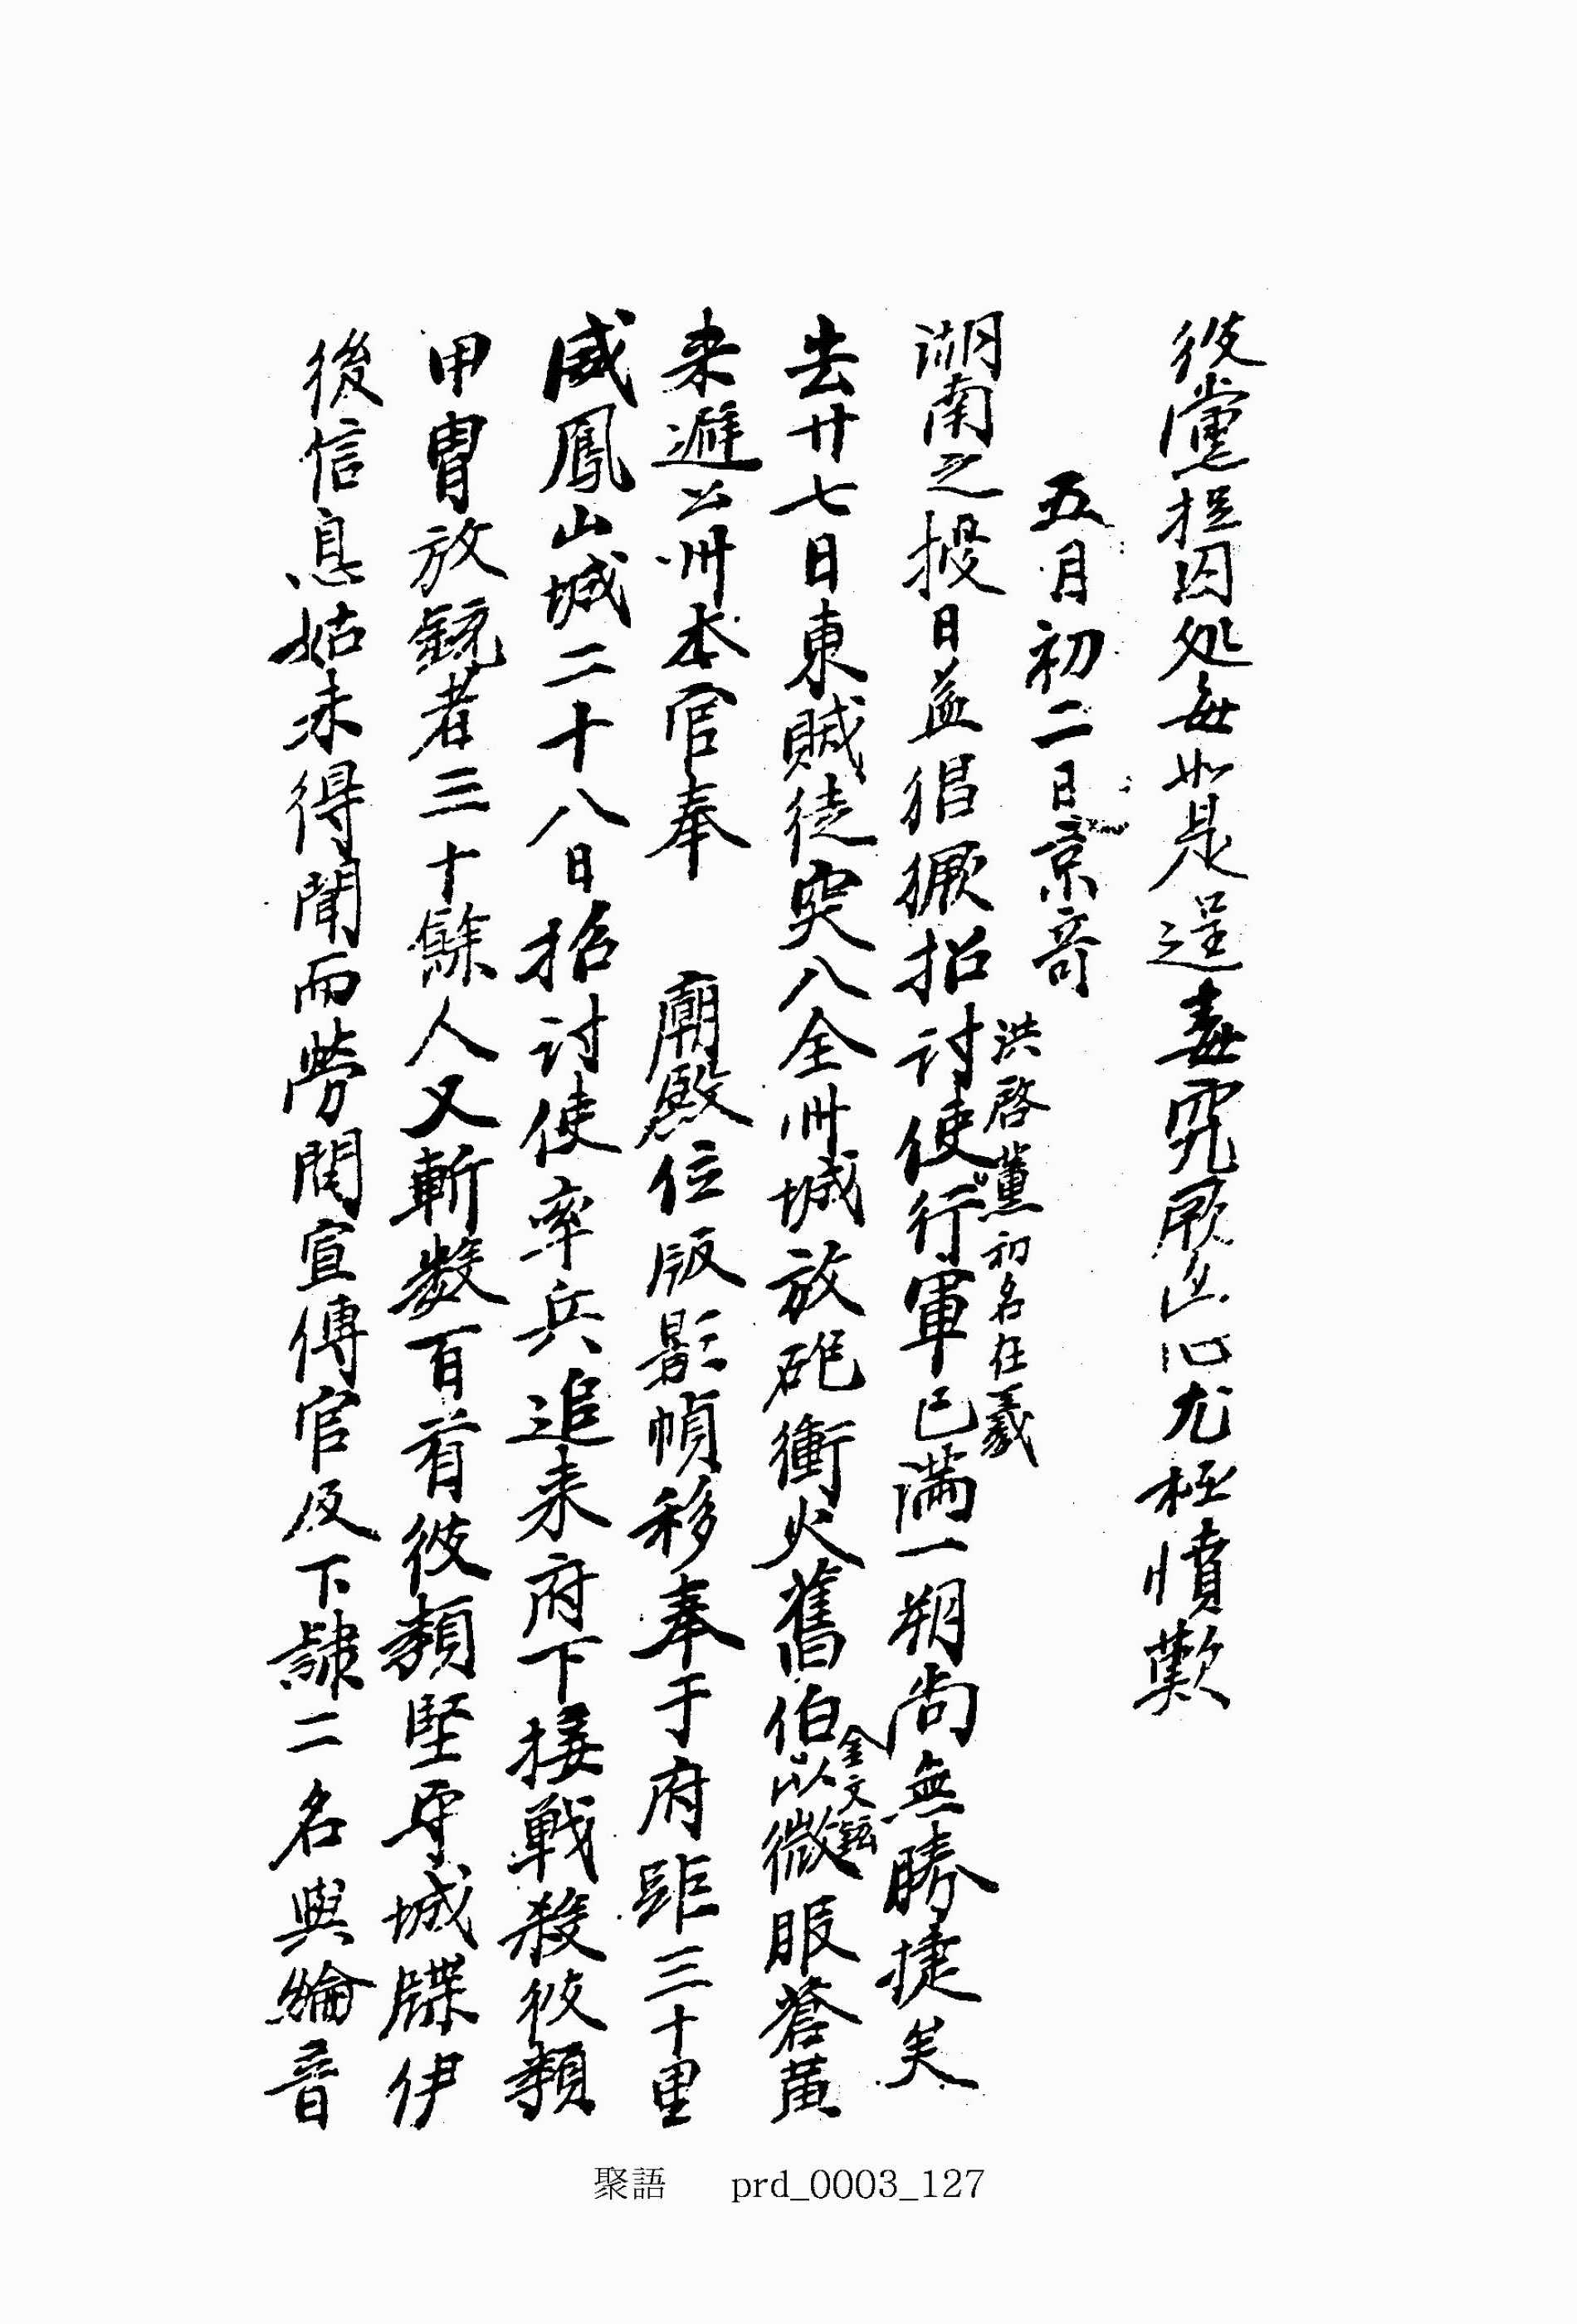 彼黨捉囚処每如是逞毒究厥凶心尤極憤歎
五月初二日京奇
湖南之擾日益猖獗招討使行軍已滿一朔尙無勝捷矣
洪啓薰初名在羲
去廿七日東賊徒突入全州城放砲衝火舊伯以微服蒼黃
金文鉉
来避公州本官奉 廟殿位版影幀移奉于府距三十里
威鳳山城二十八日招討使率兵追来府下接戰殺彼類
甲冑放銃者三十餘人又斬數百首彼類堅守城牒伊
後信息姑未得聞而勞問宣傳官及下隷二名與綸音
聚語 prd_0003_127